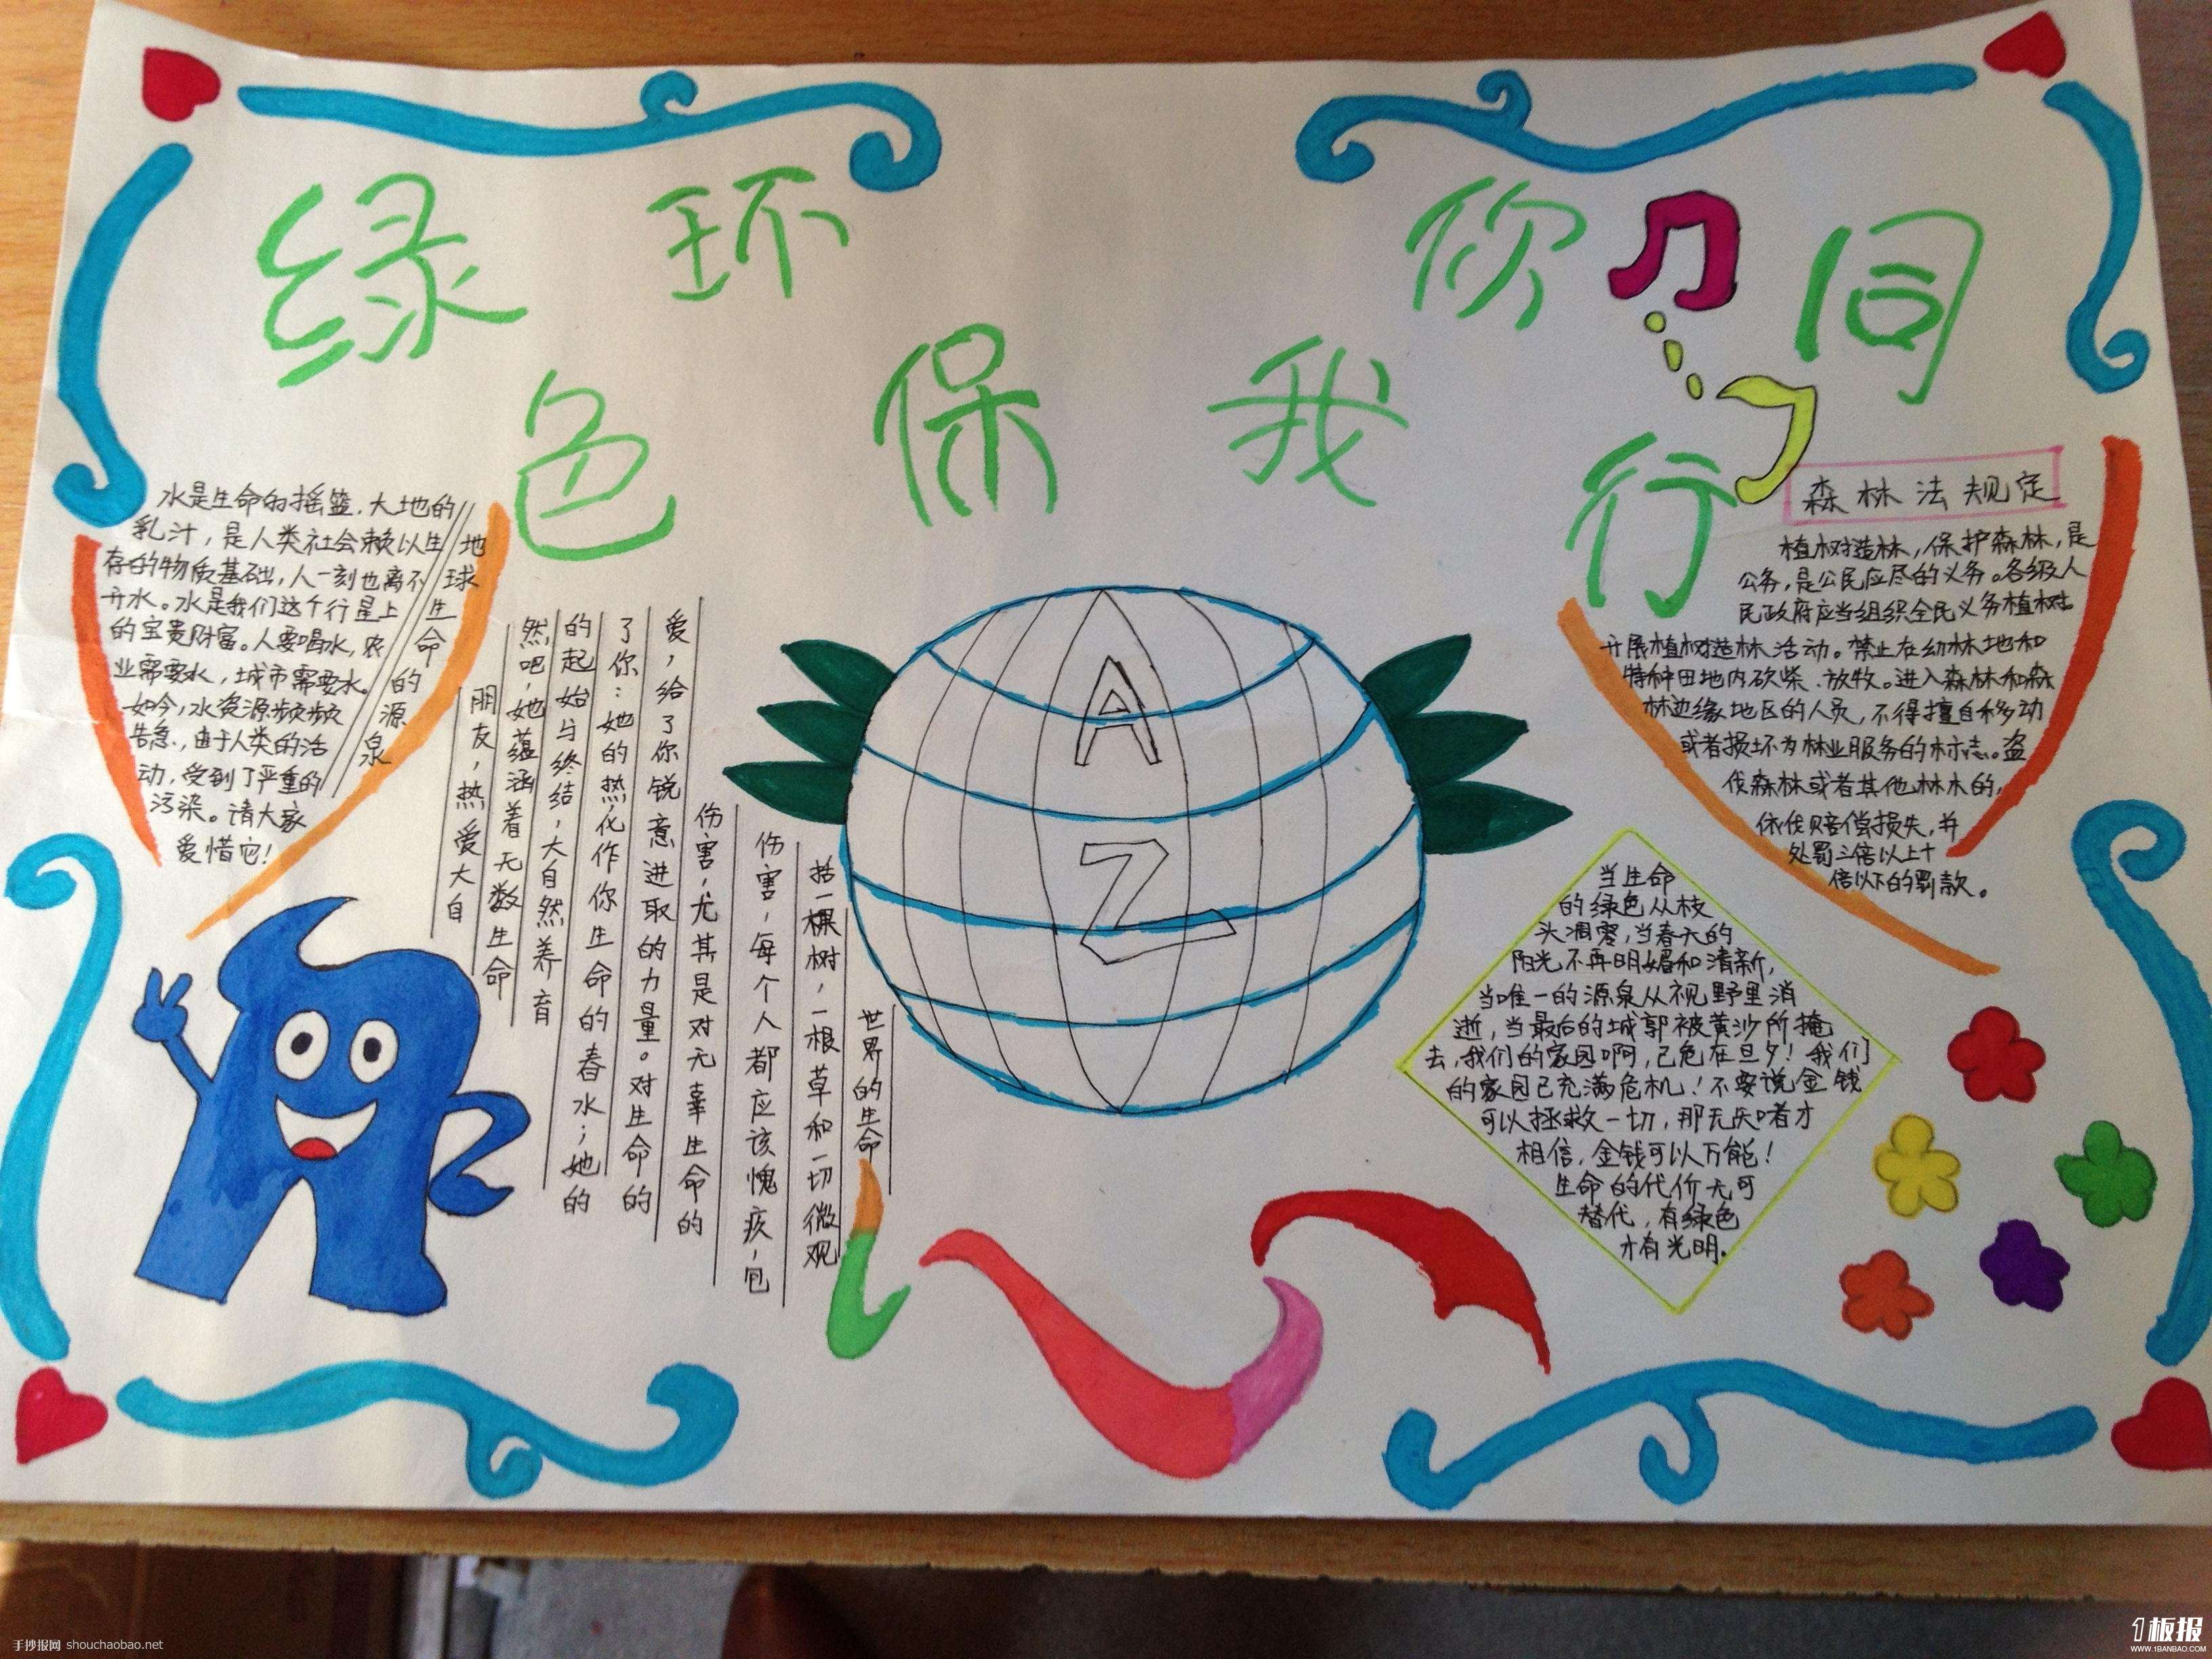 绿色环保我你同行
水是生命的摇篮、大地的
乳汁，是人类社会赖以生
存的物质基础，人一刻也离不
开水。水是我们这个行星上
的宝贵财富。人要喝水，农
业需要水，城市需要水。
如今，水资源频频
告急，由于人类的活
动，受到了严重的
污染。请大家
爱惜它！
地球生命的源泉
朋友，热爱大自
然吧，她蕴涵着无数生命
的起始与终结，大自然养育
了你：她的热化作你生命的春水；她的
爱，给了你锐意进取的力量。对生命的
伤害，尤其是对无辜生命的
伤害，每个人都应该愧疚，包
括一棵树，一根草和一切微观
世界的生命
A
Z
森林法规定
植树造林，保护森林，是
公务，是公民应尽的义务。各级人
民政府应当组织全民义务植树。
开展植树造林活动。禁止在幼林地和
特种田地内砍柴、放牧。进入森林和森
林边缘地区的人员，不得擅自移动
或者损坏为林业服务的标志。盗
伐森林或者其他林木的，
依伐赔偿损失，并
处罚三倍以上十
倍以下的罚款。
当生命
的绿色从枝
头凋零，当春天的
阳光不再明媚和清新，
当唯一的源泉从视野里消
逝，当最后的城郭被黄沙所掩
去，我们的家园啊，已危在旦夕！我们
的家园已充满危机！不要说金钱
可以拯救一切，那无庆啫才
相信，金钱可以万能！
生命的代价无可
替代，有绿色
才有光明。
手抄报网 shouchaobao.net
1板报
WWW.1BANBAO.COM